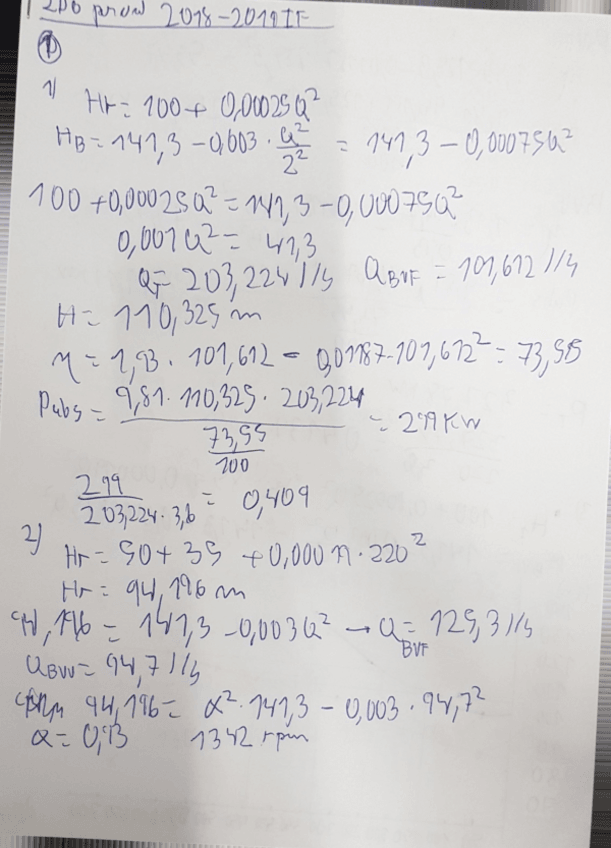 2DO prova 2018-2019 IF
1
1) Hr = 100 + 0,00025Q²
HB = 141,3 - 0,003 · Q²/2² = 141,3 - 0,00075Q²
100 + 0,00025Q² = 141,3 - 0,00075Q²
0,001Q² = 41,3
QT = 203,224 l/s QBVF = 101,612 l/s
H = 110,325 m
η = 1,93 · 101,612 - 0,01187 · 101,612² = 73,55
Pabs = 9,81 · 110,325 · 203,224 / (73,55/100) = 299 KW
299 / (203,224 · 3,6) = 0,409
2) Hr = 50 + 35 + 0,00019 · 220²
Hr = 94,196 m
94,196 = 141,3 - 0,003Q² → QBVF = 125,3 l/s
QBVV = 94,7 l/s
94,196 = α² · 141,3 - 0,003 · 94,7²
α = 0,93 1342 rpm